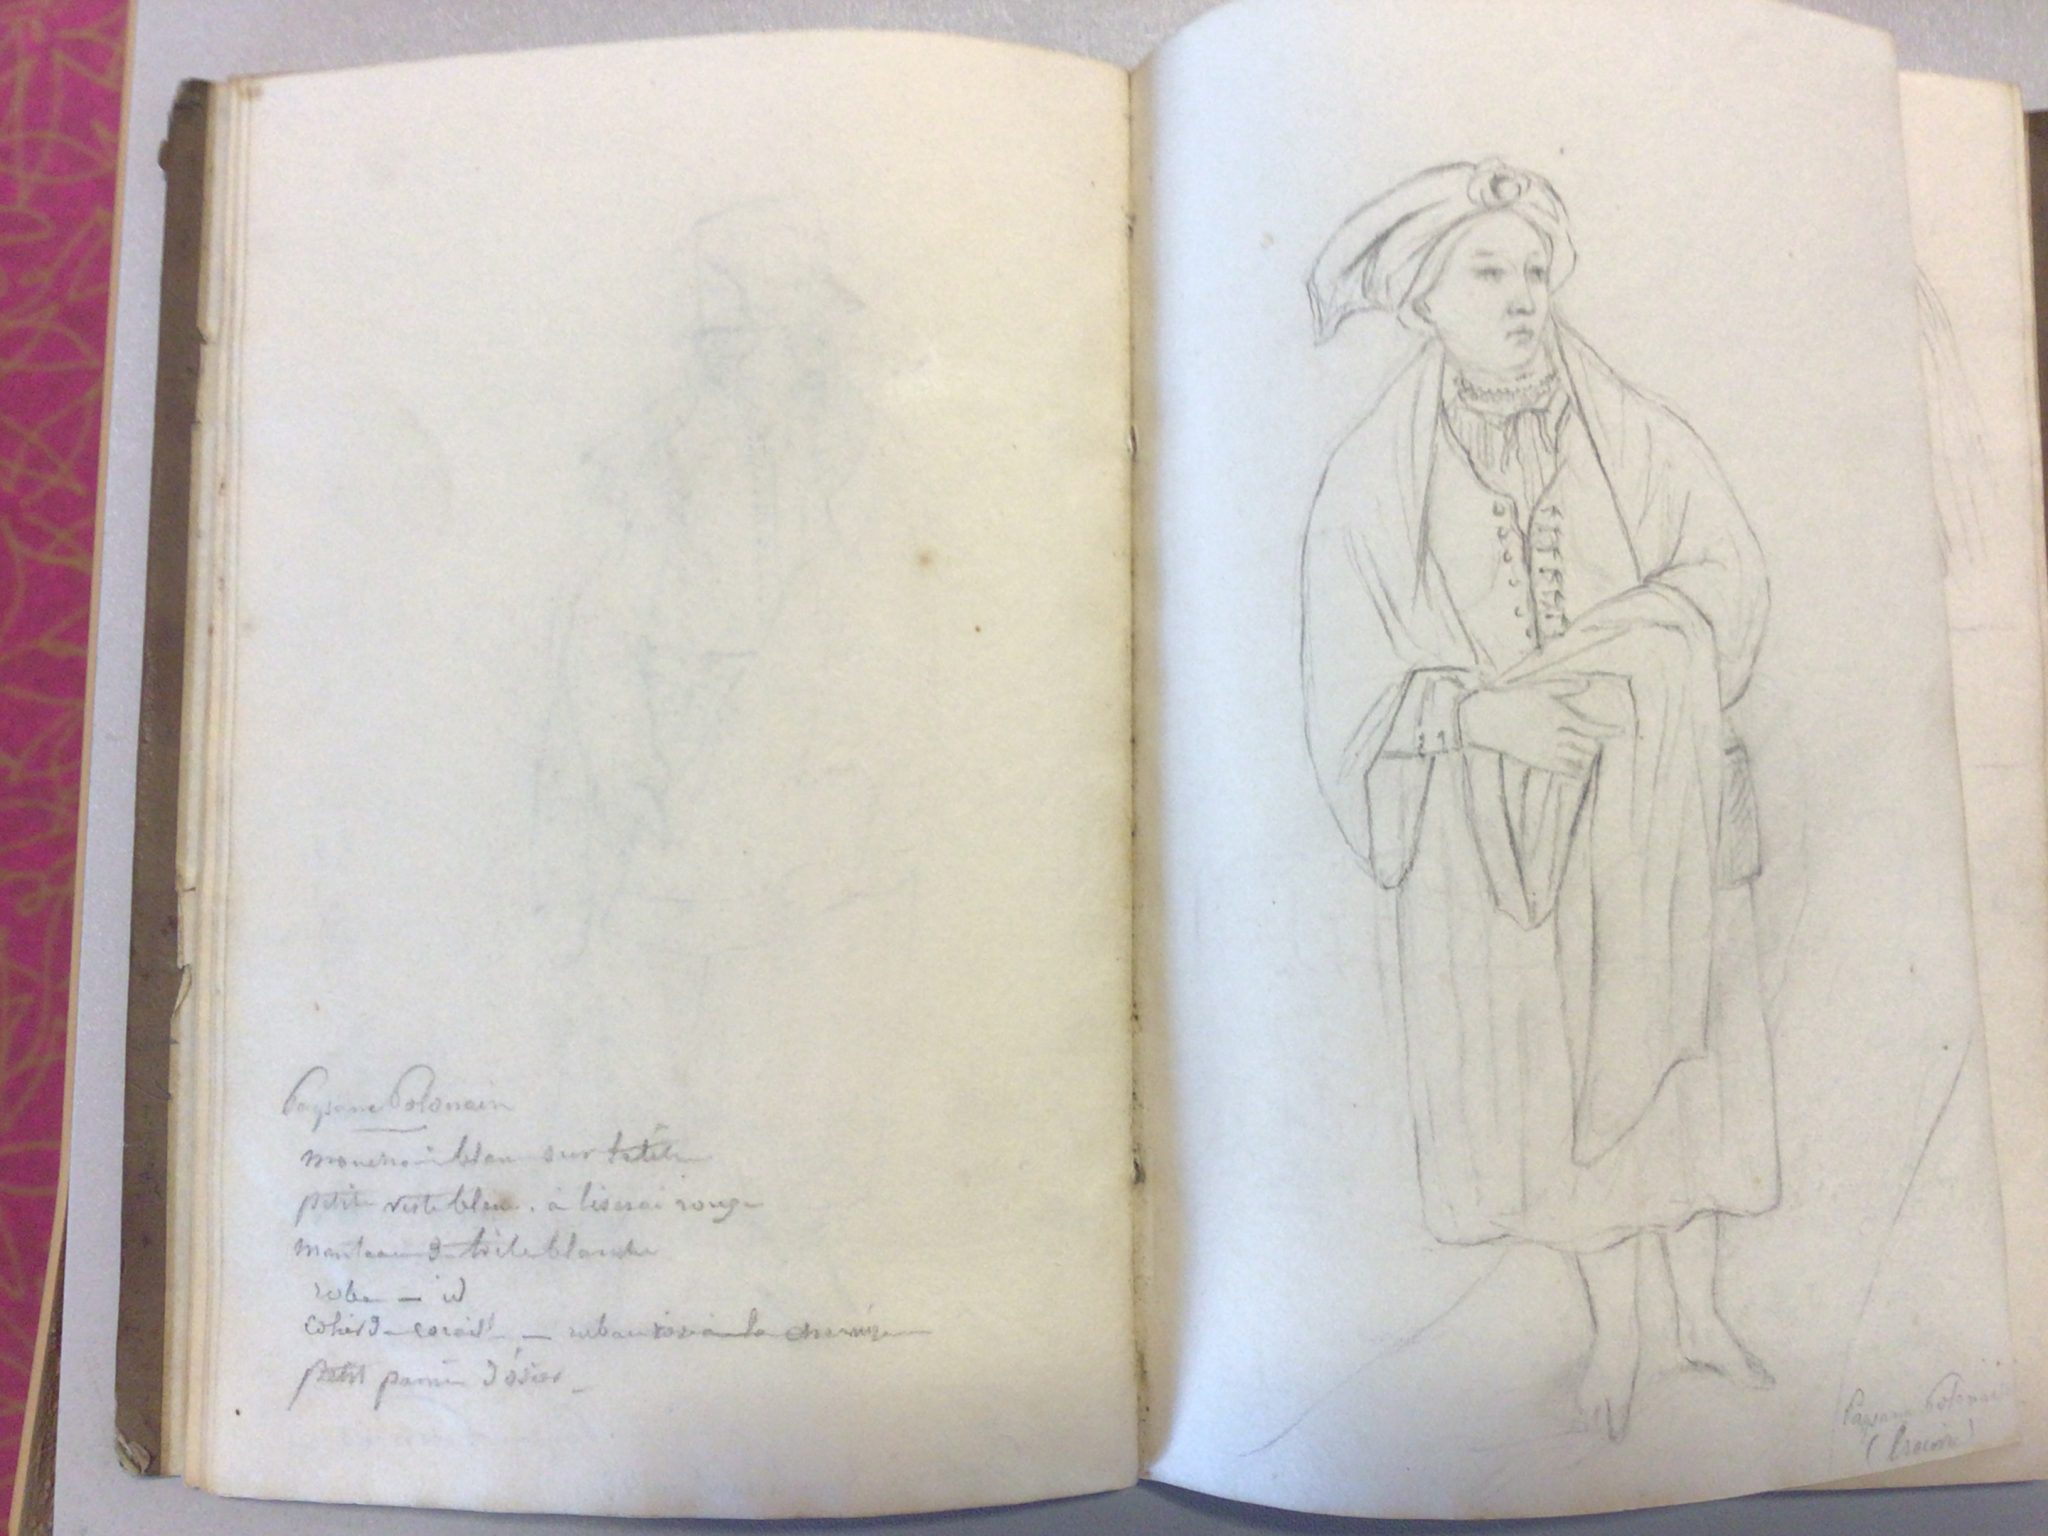 Paysanne Polonaise
mouchoir blanc sur la tête
petite veste bleue à liserai rouge
manteau de toile blanche
robe — id
colier de corail — ruban rose à la chemise
petit panier d'osier
Paysanne Polonaise